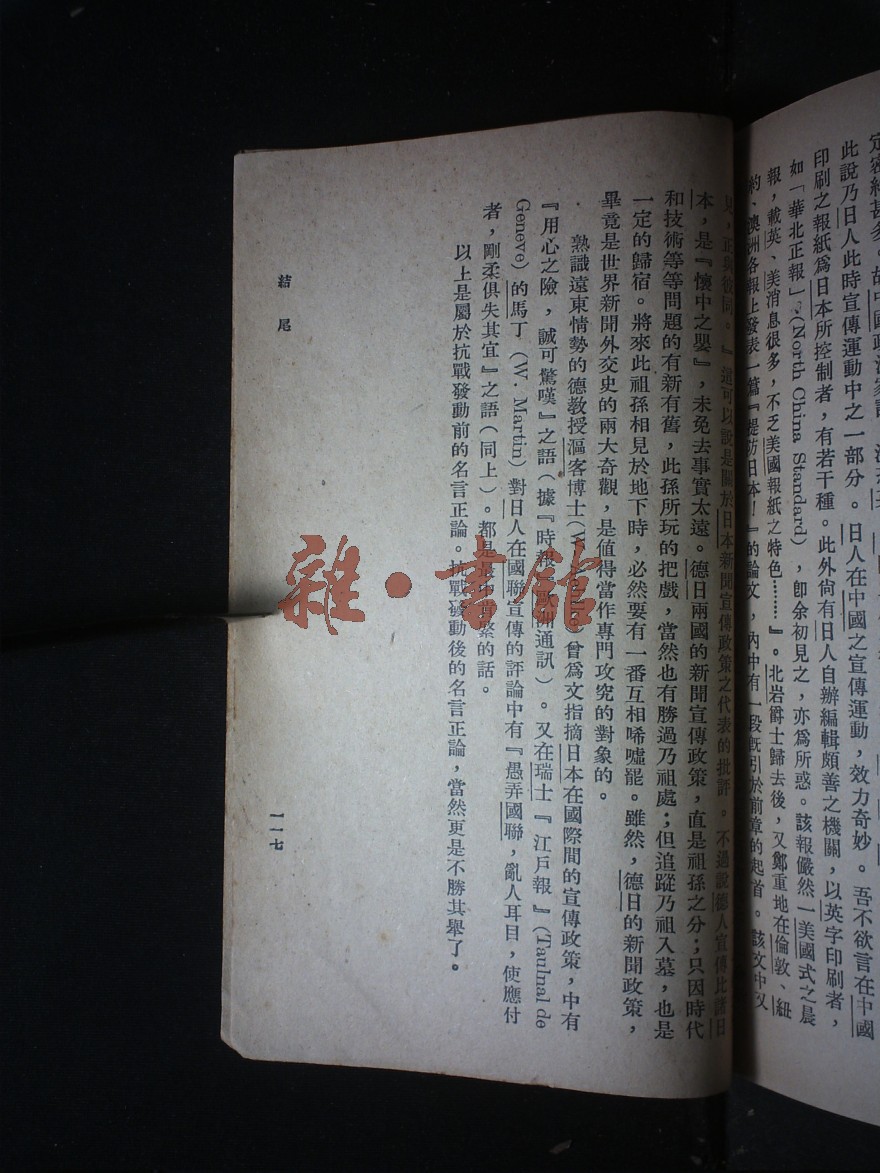 定密約甚多。故中國政治家說
此說乃日人此時宣傳運動中之一部分。日人在中國之宣傳運動，效力奇妙。吾不欲言在中國
印刷之報紙爲日本所控制者，有若干種。此外尙有日人自辦編輯頗善之機關，以英字印刷者，
如「華北正報」(North China Standard)，卽余初見之，亦爲所惑。該報儼然一美國式之晨
報，載英、美消息很多，不乏美國報紙之特色……』。北岩爵士歸去後，又鄭重地在倫敦、紐
約、澳洲各報上發表一篇『提防日本！』的論文，內中有一段旣引於前章的起首。該文中又
見，正與彼同。』這可以說是關於日本新聞宣傳政策之代表的批評。不過說德人宣傳比諸日
本，是『懷中之嬰』，未免去事實太遠。德日兩國的新聞宣傳政策，直是祖孫之分；只因時代
和技術等等問題的有新有舊，此孫所玩的把戲，當然也有勝過乃祖處；但追蹤乃祖入墓，也是
一定的歸宿。將來此祖孫相見於地下時，必然要有一番互相唏噓罷。雖然，德日的新聞政策，
畢竟是世界新聞外交史的兩大奇觀，是値得當作專門攻究的對象的。
熟識遠東情勢的德教授漚客博士曾爲文指摘日本在國際間的宣傳政策，中有
『用心之險，誠可驚嘆』之語（據『時報』歐洲通訊）。又在瑞士『江戶報』(Taulnal de
Geneve)的馬丁(W. Martin)對日人在國聯宣傳的評論中有『愚弄國聯，亂人耳目，使應付
者，剛柔俱失其宜』之語（同上）。都是最中肯綮的話。
以上是屬於抗戰發動前的名言正論。抗戰發動後的名言正論，當然更是不勝其舉了。
結尾
一一七
雜·書館